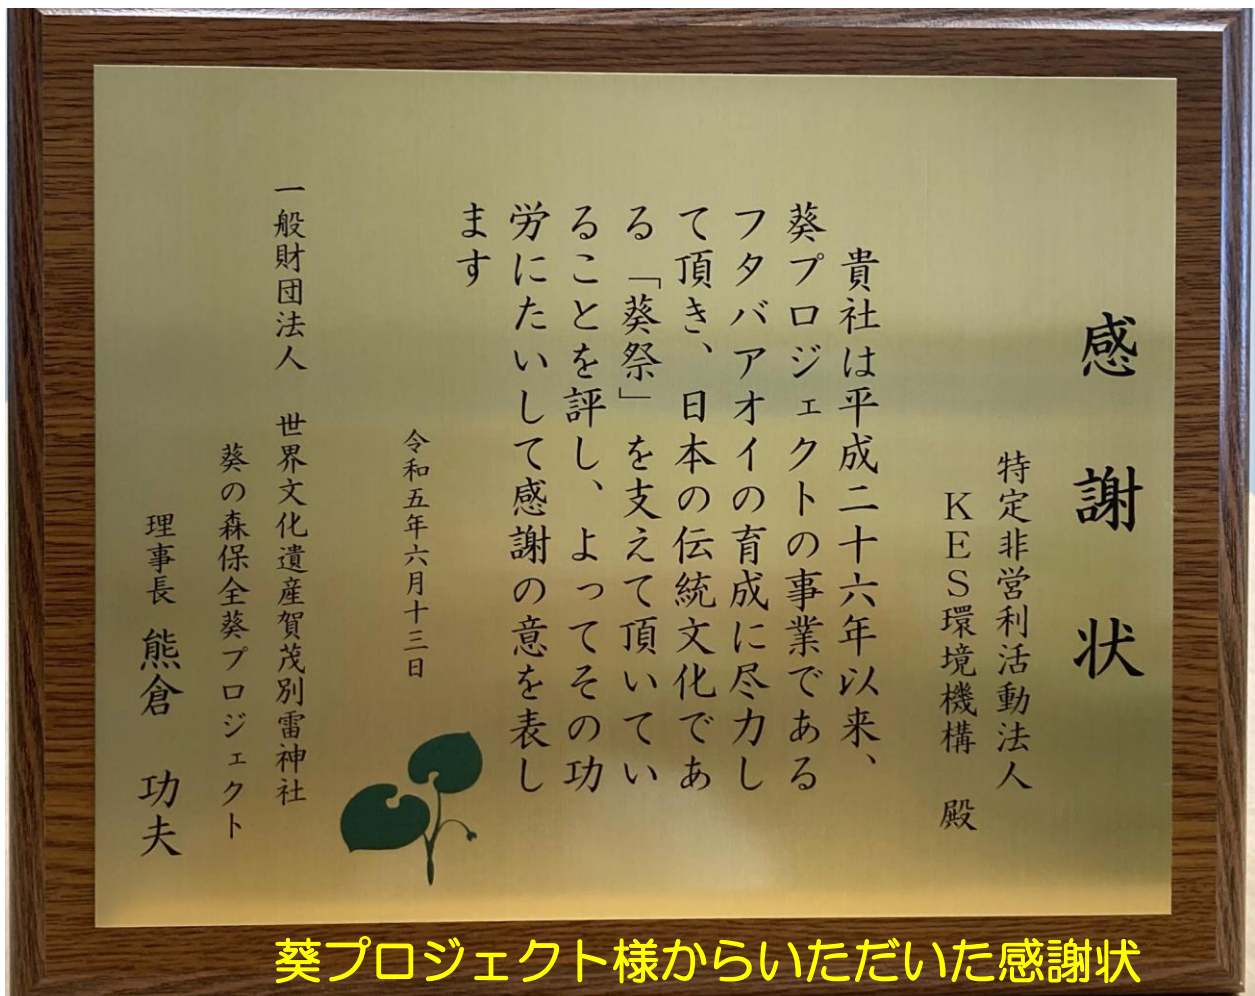 感謝状
特定非営利活動法人
KES環境機構 殿
貴社は平成二十六年以来、
葵プロジェクトの事業である
フタバアオイの育成に尽力し
て頂き、日本の伝統文化であ
る「葵祭」を支えて頂いてい
ることを評し、よってその功
労にたいして感謝の意を表し
ます
令和五年六月十三日
一般財団法人 世界文化遺産賀茂別雷神社
葵の森保全葵プロジェクト
理事長 熊倉 功夫
葵プロジェクト様からいただいた感謝状